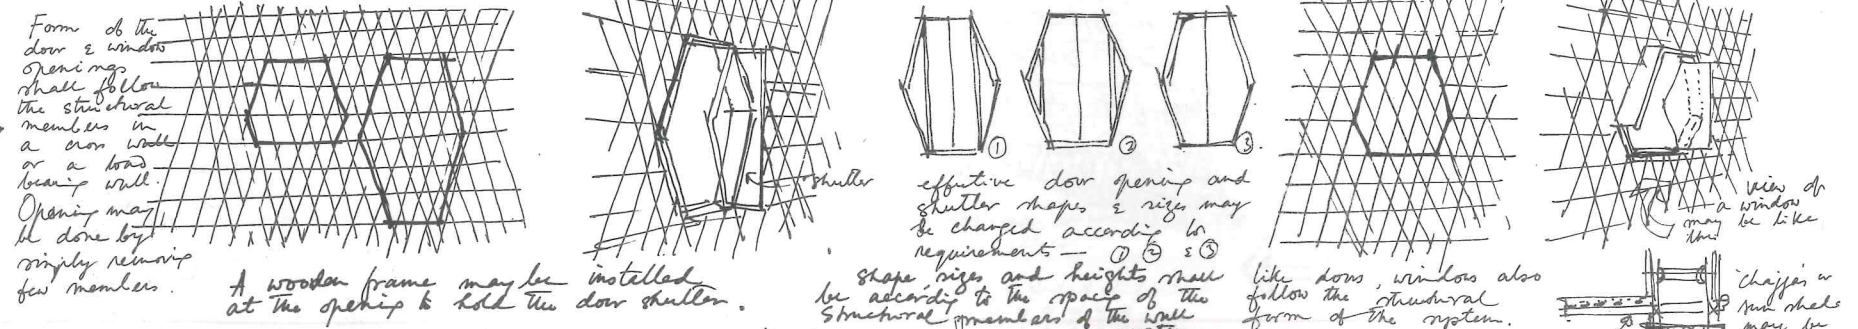 Form of the
door & window
openings
shall follow
the structural
members in
a cross wall
or a load
bearing wall.
Opening may
be done by
simply removing
few members.
A wooden frame may be installed
at the opening to hold the door shutter.
shutter
① ② ③
effective door opening and
shutter shapes & sizes may
be changed according to
requirements — ① ② & ③
shape, sizes and heights shall
be according to the spacing of the
structural members of the wall
like doors, windows also
follow the structural
form of the system.
view of
a window
may be like
this
chajjas or
sun sheds
may be